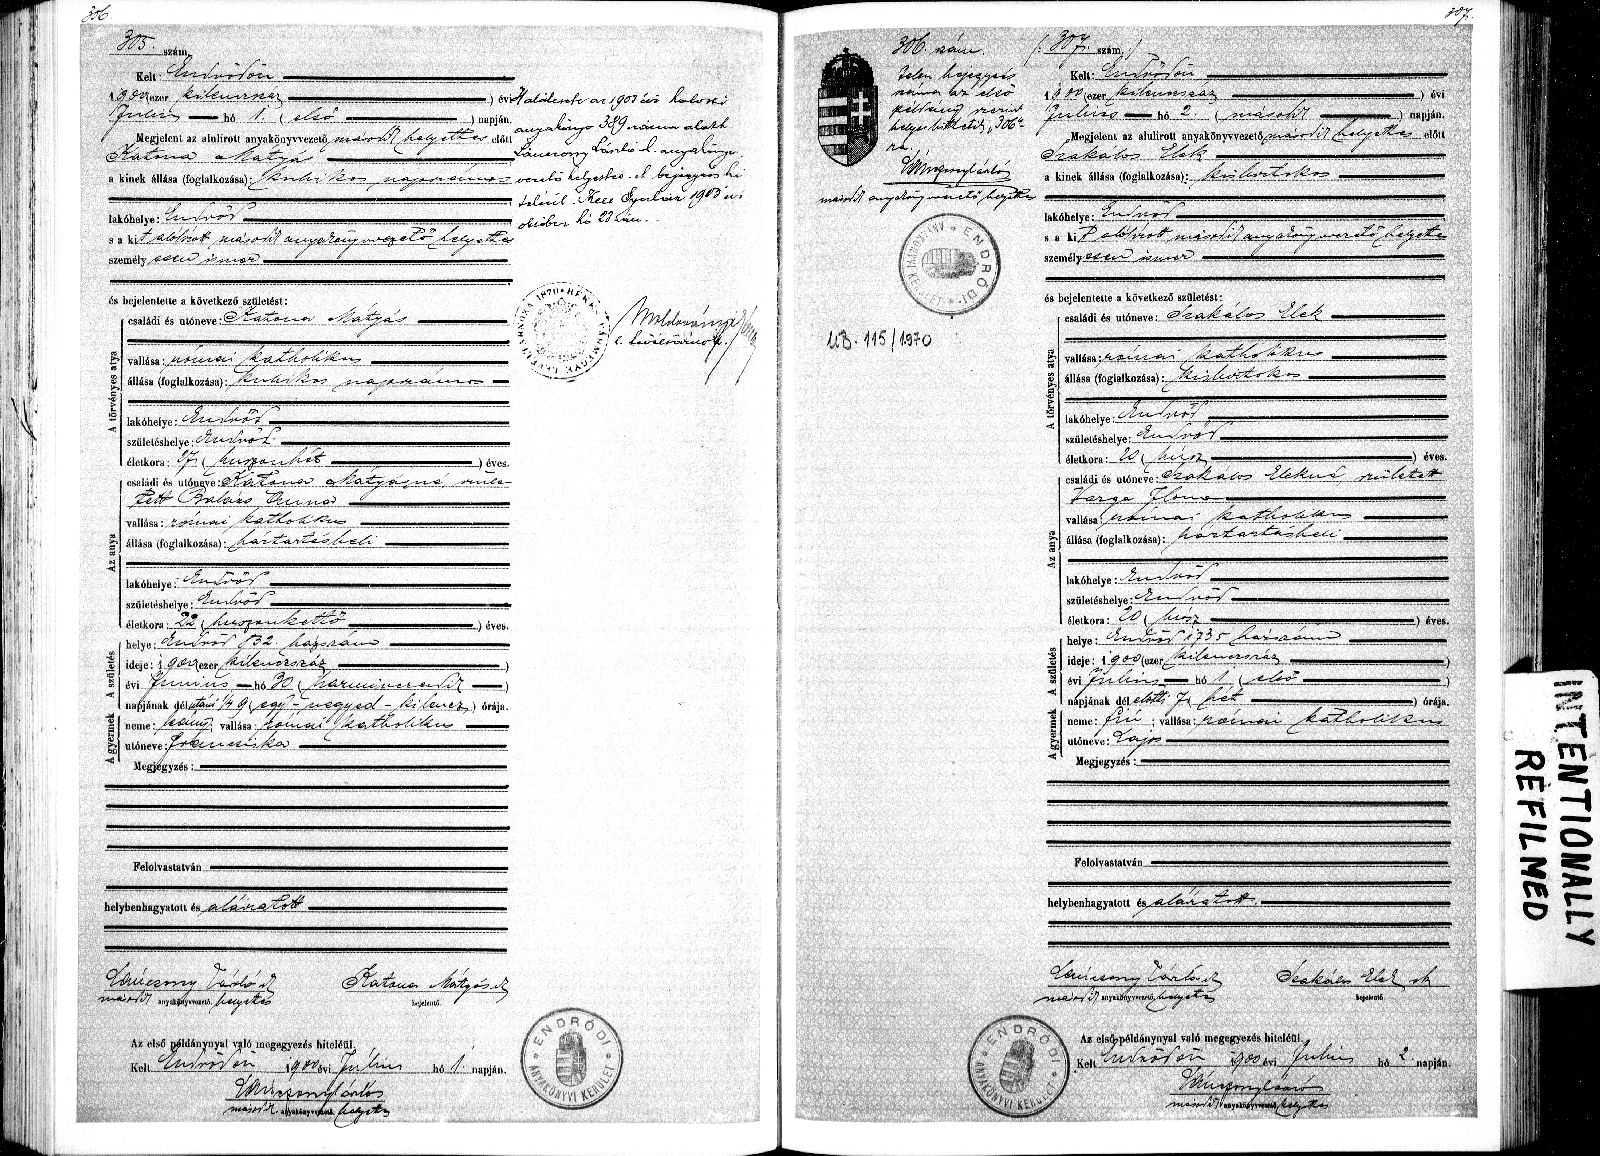 306
305. szám.
Kelt: Endrődön
1900 (ezer kilenczszáz) évi
Julius hó 1. (első) napján.
Megjelent az alulirott anyakönyvvezető második helyettes előtt
Katona Mátyá
a kinek állása (foglalkozása): kubikos napszámos
lakóhelye: Endrőd
s a kit alólirott második anyakönyvvezető helyettes
személyesen ismer
és bejelentette a következő születést:
A törvényes atya
családi és utóneve: Katona Mátyás
vallása: római katholikus
állása (foglalkozása): kubikos napszámos
lakóhelye: Endrőd
születéshelye: Endrőd
életkora: 27 (huszonhét) éves.
Az anya
családi és utóneve: Katona Mátyásné, szüle-
tett Balázs Anna
vallása: római katholikus
állása (foglalkozása): háztartásbeli
lakóhelye: Endrőd
születéshelye: Endrőd
életkora: 22 (huszonkettő) éves.
A születés
helye: Endrőd 832. házszám
ideje: 1900 (ezer kilenczszáz)
évi Junius hó 30 (harminczadik)
napjának dél utáni 1/4 9 (egy-negyed-kilencz) órája.
A gyermek
neme: leány; vallása: római katholikus
utóneve: Francziska
Megjegyzés:
Felolvastatván
helybenhagyatott és aláiratott
másodk anyakönyvvezető. helyettes
Katona Mátyás sk
bejelentő.
Az első példánynyal való megegyezés hiteléül.
Kelt Endrődön 1900 évi Július hó 1. napján.
másodk anyakönyvvezető helyettes
ENDRŐDI
ANYAKÖNYVI KERÜLET
Halálesete az 1903 évi halotti
anyakönyv 389 száma alatt
László h. anyakönyv
vezető helyettes. A bejegyzés hi
teléül. Kelt Gyulán 1903 évi
október hó 23 án.
306. szám.
Jelen bejegyzés
száma az első
példány szerint
helyesbittetik „306"-
ra.
másodk anyakönyvvezető helyettes
ENDRŐDI
113. 115/1970
307.
(: 307. szám. :)
Kelt: Endrődön
1900 (ezer kilenczszáz) évi
Julius hó 2. (második) napján.
Megjelent az alulirott anyakönyvvezető második helyettes előtt
Szakálos Elek
a kinek állása (foglalkozása): kisbirtokos
lakóhelye: Endrőd
s a kit alólirott másodk anyakönyvvezető helyettes
személyesen ismer
és bejelentette a következő születést:
A törvényes atya
családi és utóneve: Szakálos Elek
vallása: római katholikus
állása (foglalkozása): kisbirtokos
lakóhelye: Endrőd
születéshelye: Endrőd
életkora: 20 (húsz) éves.
Az anya
családi és utóneve: Szakálos Elekné született
Varga Ilona
vallása: római katholikus
állása (foglalkozása): háztartásbeli
lakóhelye: Endrőd
születéshelye: Endrőd
életkora: 20 (húsz) éves.
A születés
helye: Endrőd 1735 házszám
ideje: 1900 (ezer kilenczszáz)
évi Július hó 1 (első)
napjának dél előtti 7 (hét) órája.
A gyermek
neme: fiu; vallása: római katholikus
utóneve: Lajos
Megjegyzés:
Felolvastatván
helybenhagyatott és aláiratott.
másodk anyakönyvvezető. helyettes
Szakálos Elek sk
bejelentő
Az első példánynyal való megegyezés hiteléül.
Kelt Endrődön 1900 évi Julius hó 2 napján.
másodk anyakönyvvezető helyettes
ENDRŐDI
ANYAKÖNYVI KERÜLET
INTENTIONALLY
REFILMED